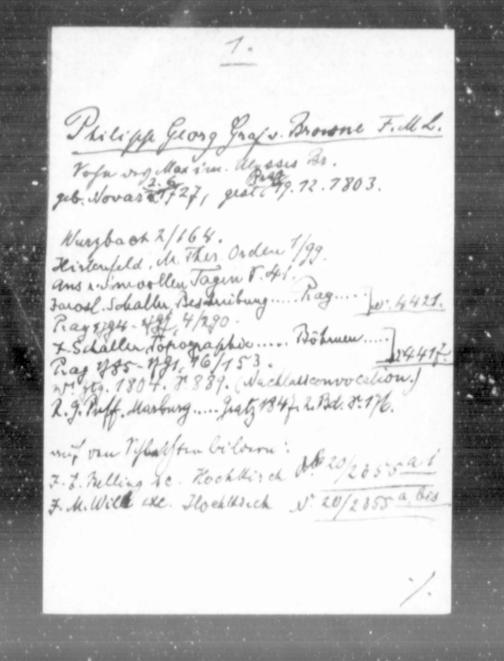 1.
Philipp Georg Graf v. Browne F.M.L.
Sohn des Maxim. Ulysses Br.
geb. Novara 2.6. 1727, gest. Prag 19.12.1803.
Wurzbach 2/164.
Hirtenfeld, M. Ther. Orden 1/99.
Aus ruhmvollen Tagen S. 41.
Jarosl. Schaller, Beschreibung..... Prag.....
Prag 1794-1797, 4/290. N. 4421.
J. Schaller, Topographie..... Böhmen.....
Prag 1785-1791, 16/153. 24417
Ztg. 1804. S 889. (Nachlassconvocation.)
R. G. Puff, Marburg..... Gratz 1847, 2. Bd. S. 176.
auf den Schlachtenbildern:
Belling sc. Hochkirch N. 20/2355 a, 1
J. M. Will exc. Hochkirch N. 20/2355 a, bis
./.